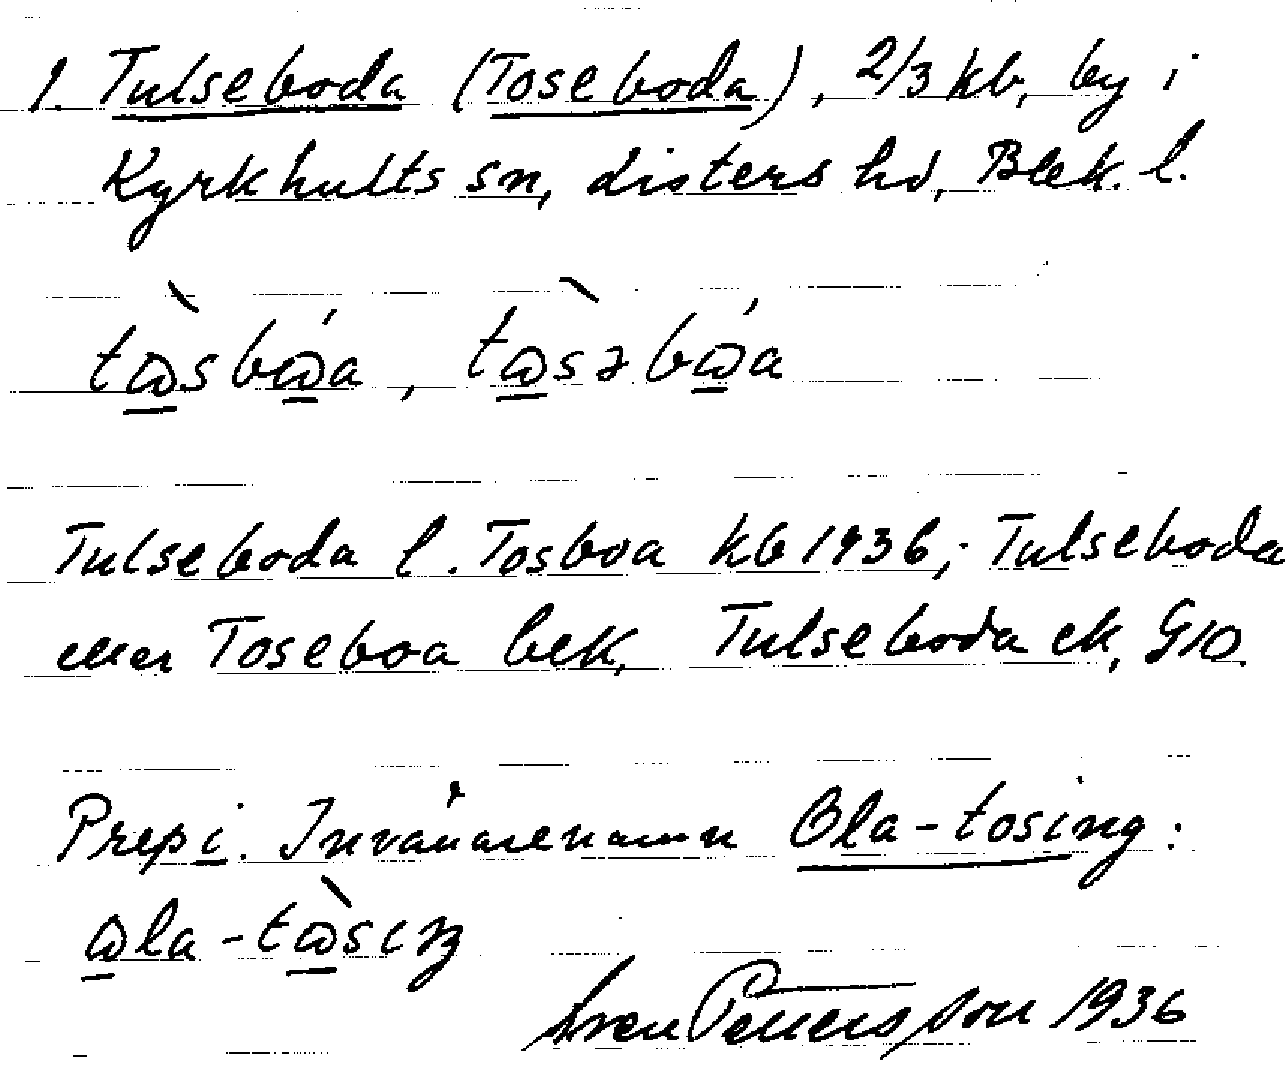 1. Tulseboda (Toseboda), 2/3 kb, by i
Kyrkhults sn, Listers hd, Blek. l.
tɷ̀sbɷ́a, tɷ̀səbɷ́a
Tulseboda l. Tosboa kb 1936; Tulseboda
eller Toseboa bek, Tulseboda ek, G10.
Prep i. Invånarenamn Ola-tosing:
ɷla-tɷ̀sıŋ
Sven Pettersson 1936